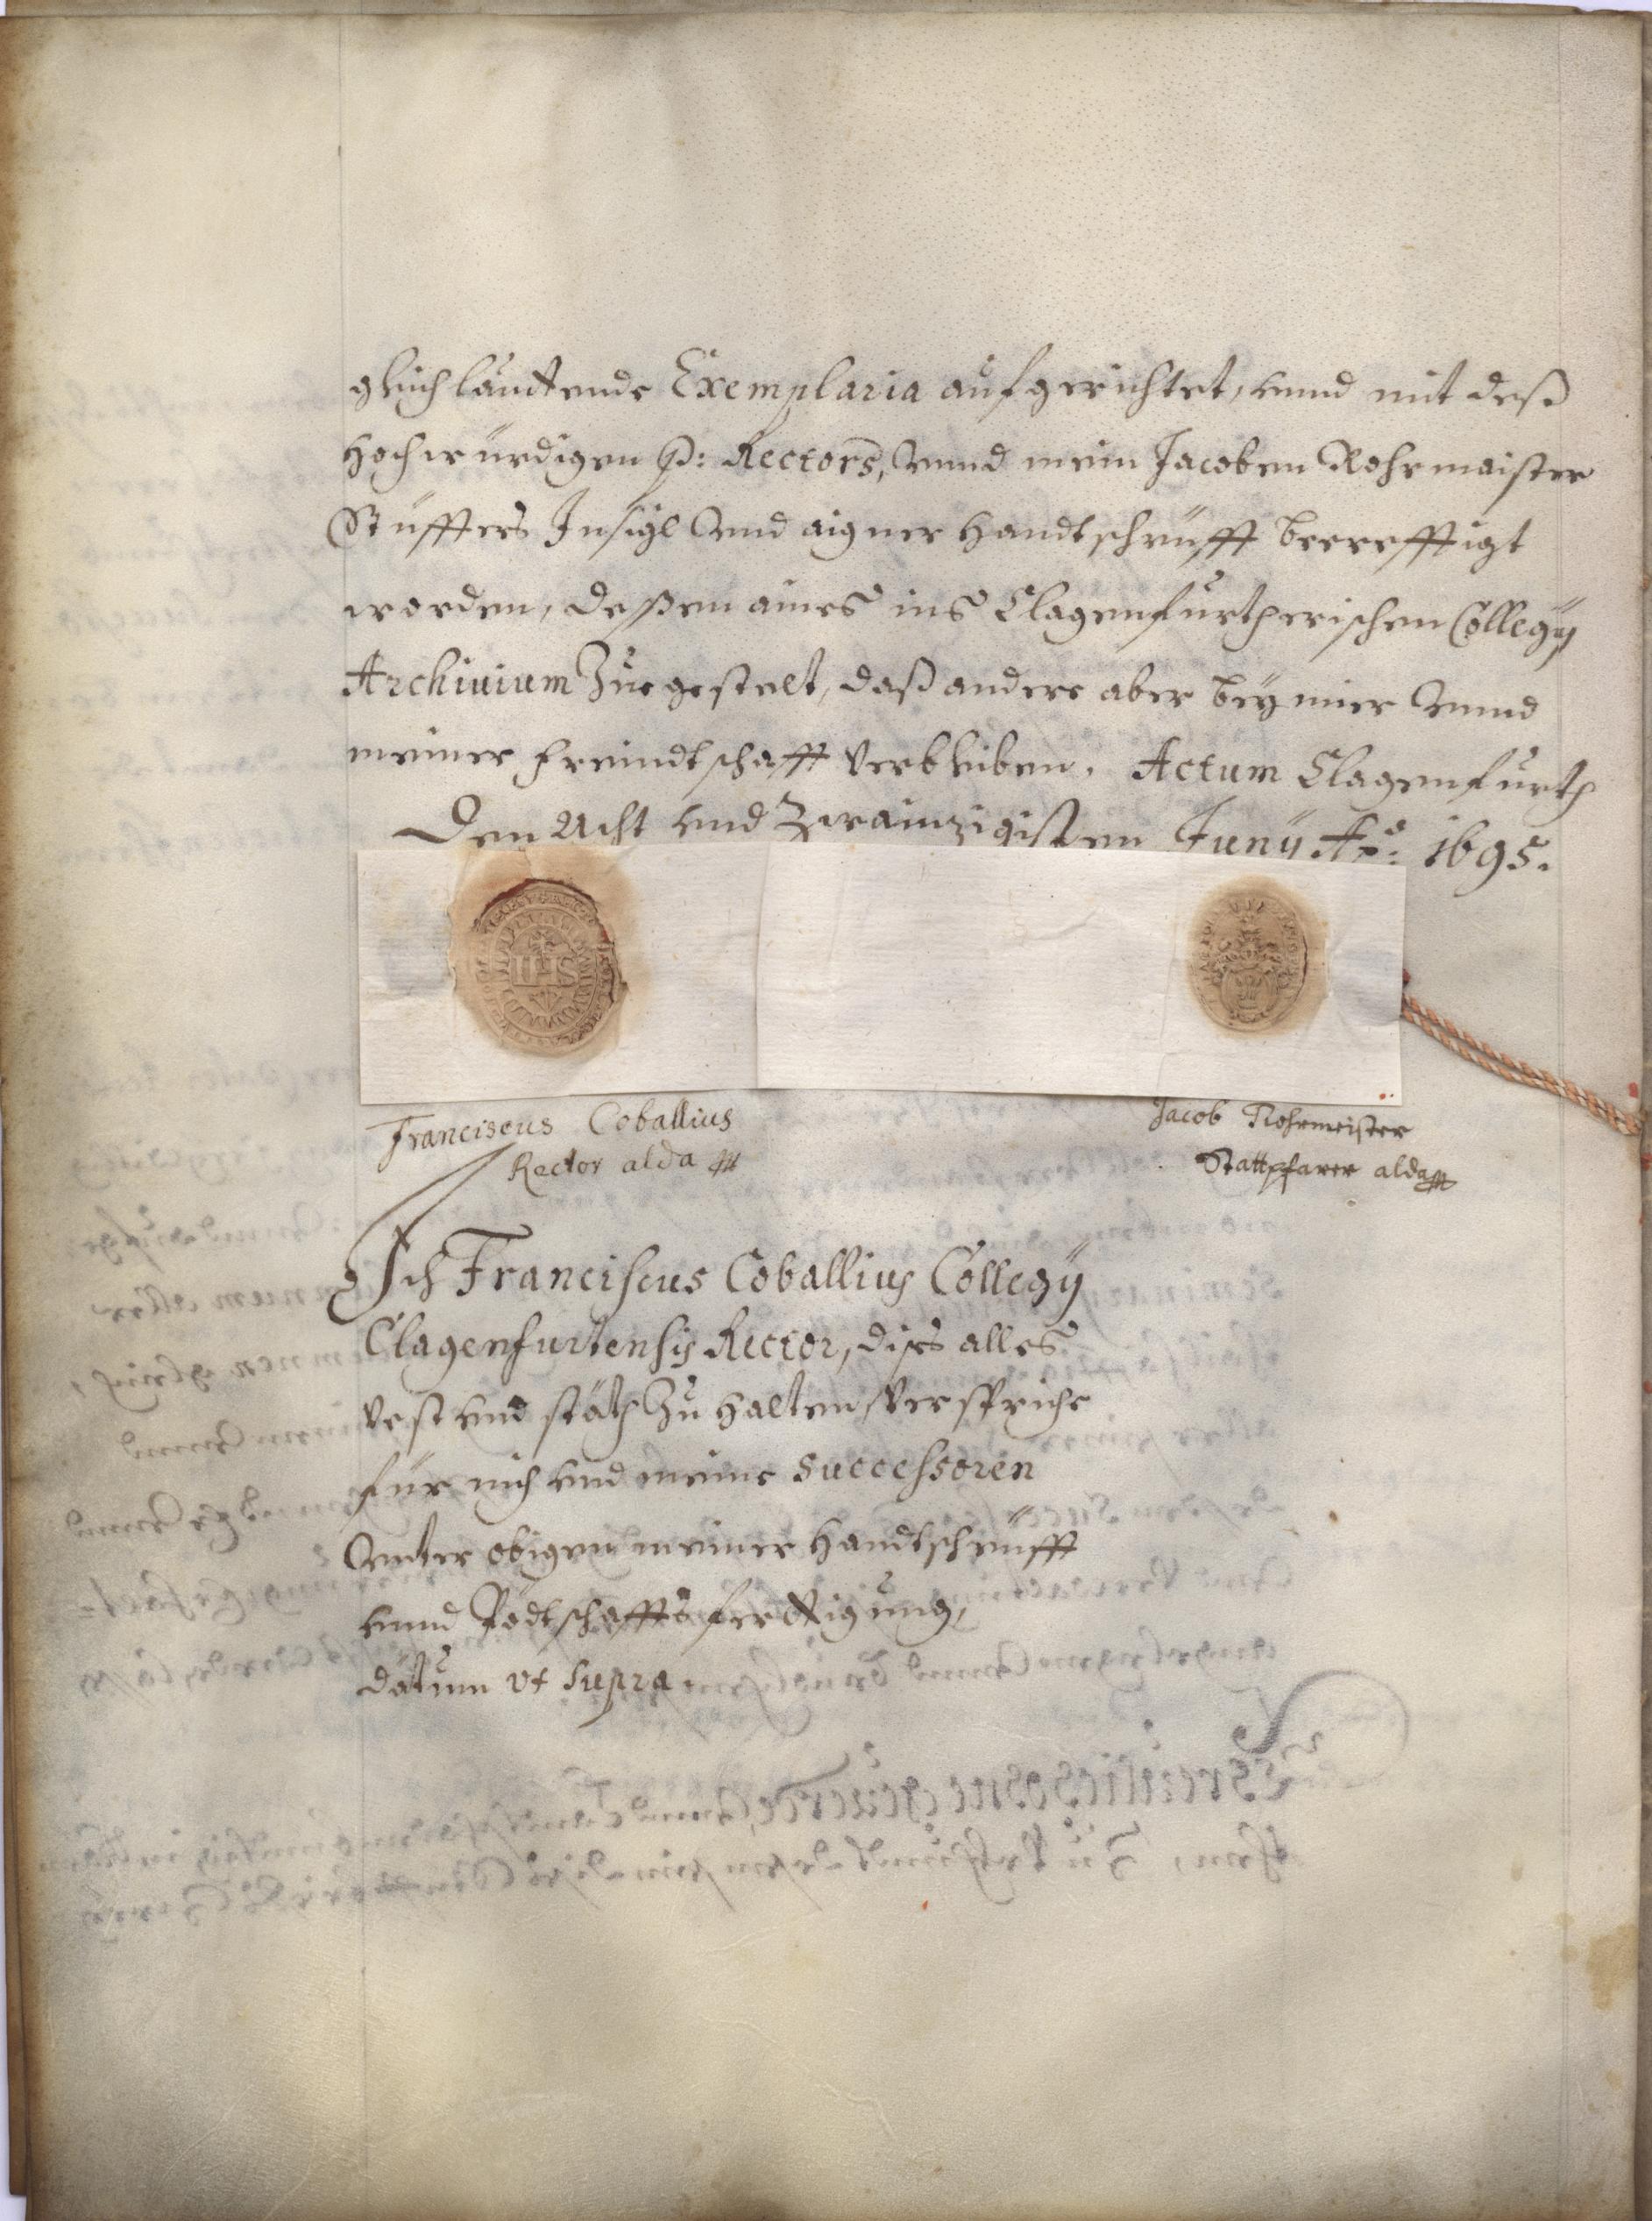 gleichlautende Exemplaria aufgerichtet, vnnd mit deß
Hochwürdigen P: Rectors, Vnnd mein Jacoben Rohrmaister
Stüffters Insigl Vnd aigner Handtschrüfft becrefftigt
worden, dessen aines ins Clagenfurtherischen Collegÿ
Archiuium Zuegestelt, daß andere aber beÿ mier Vnnd
meiner Freindtschafft verbleiben. Actum Clagenfurth
Den Acht vnd Zwainzigisten Junÿ Aō: 1695.
IHS
Franciscus Coballius
Rector alda
Jacob Rohrmeister
Stattpfarer alda
Ich Franciscus Coballius Collegÿ
Clagenfurtensis Rector, dises alles
vest vnd stäth Zu halten verspriche
für mich vnd meine successoren
Vnter obigen meiner Handtschrüfft
vnnd Pödtschaffts ferttigung,
datum vt supra.